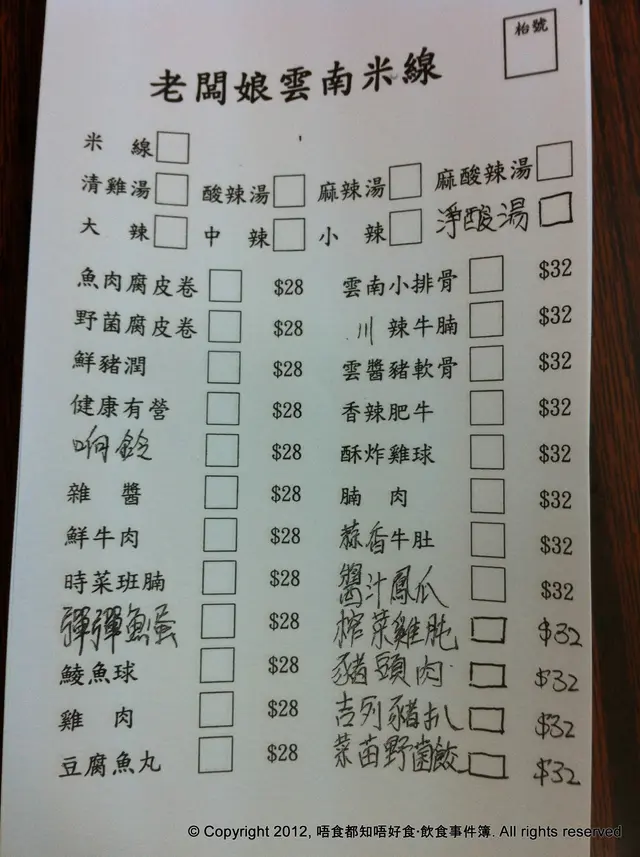 枱號
老闆娘雲南米線
米 線 □
清雞湯 □ 酸辣湯 □ 麻辣湯 □ 麻酸辣湯 □
大 辣 □ 中 辣 □ 小 辣 □ 淨酸湯 □
魚肉腐皮卷 □ $28 雲南小排骨 □ $32
野菌腐皮卷 □ $28 川辣牛腩 □ $32
鮮豬潤 □ $28 雲醬豬軟骨 □ $32
健康有營 □ $28 香辣肥牛 □ $32
响鈴 □ $28 酥炸雞球 □ $32
雜 醬 □ $28 腩 肉 □ $32
鮮牛肉 □ $28 蒜香牛肚 □ $32
時菜班腩 □ $28 醬汁鳳爪 □ $32
彈彈魚蛋 □ $28 榨菜雞肶 □ $32
鯪魚球 □ $28 豬頸肉 □ $32
雞 肉 □ $28 吉列豬扒 □ $32
豆腐魚丸 □ $28 菜苗野菌餃 □ $32
© Copyright 2012, 唔食都知唔好食·飲食事件簿. All rights reserved